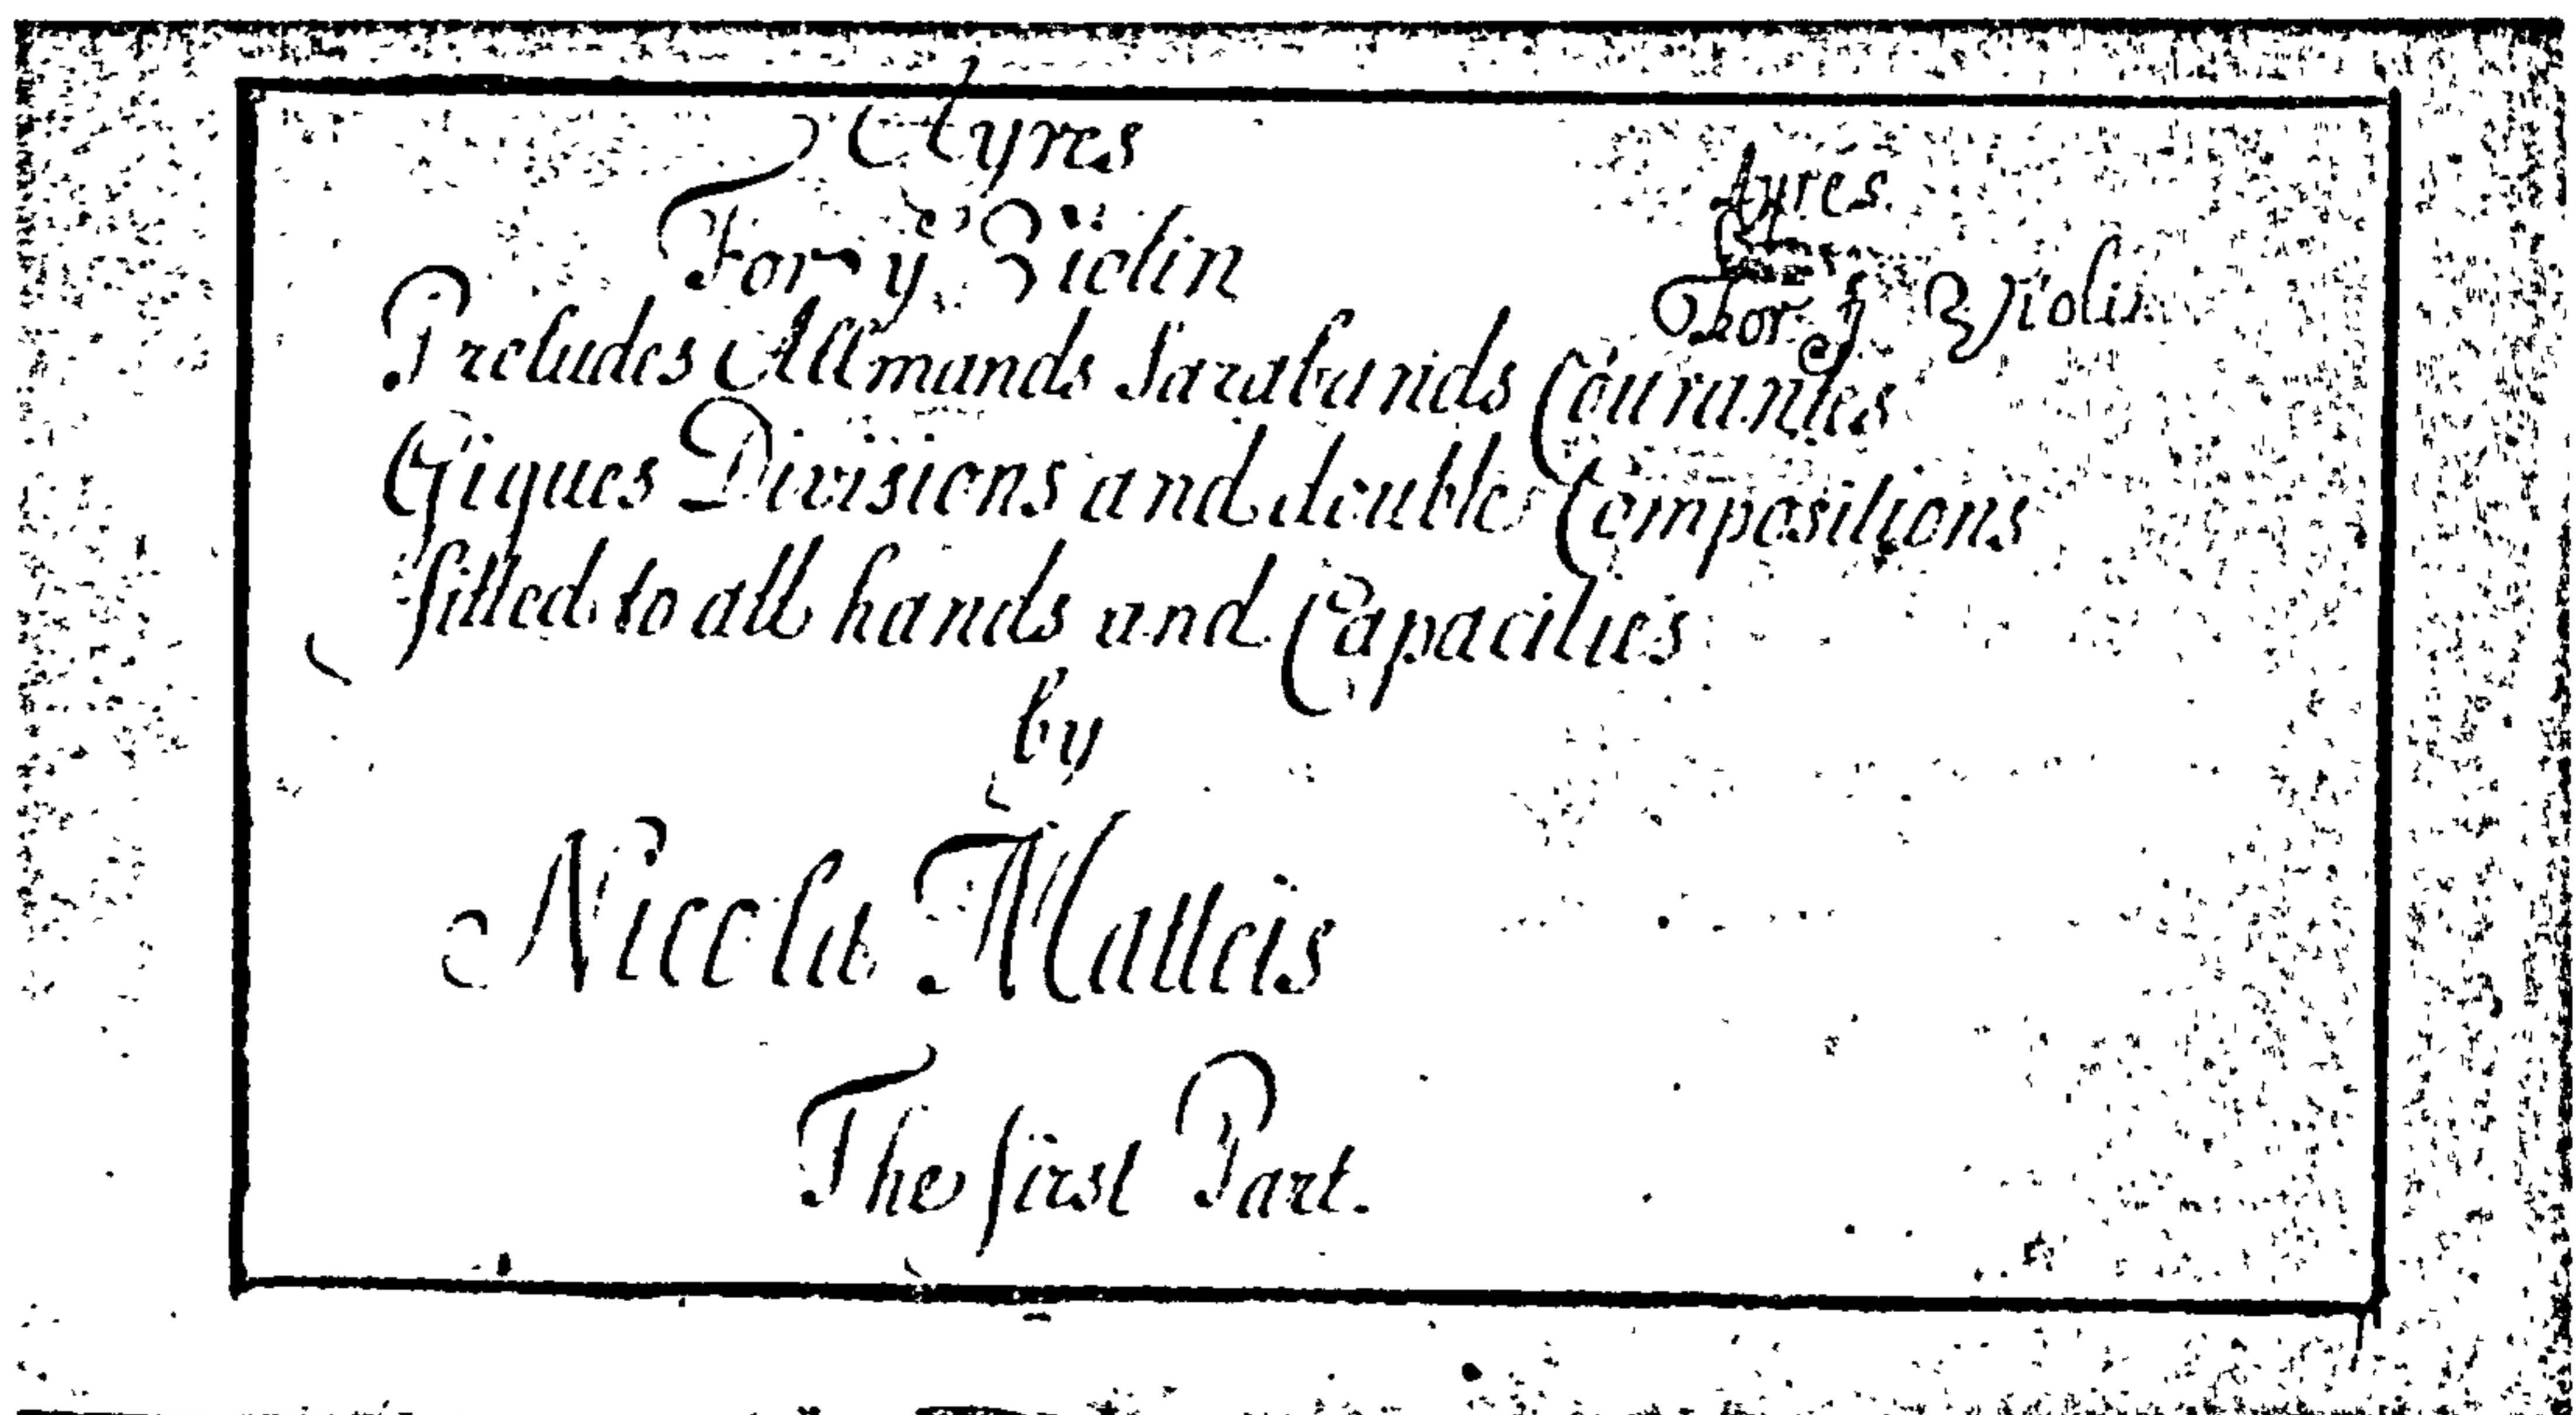 Ayres
For yᵉ Violin
Preludes Allmands Sarabands Courantes
Giques Divisions and double Compositions
fitted to all hands and Capacities
by
Nicola Matteis
The first Part.
Ayres
For yᵉ Violin